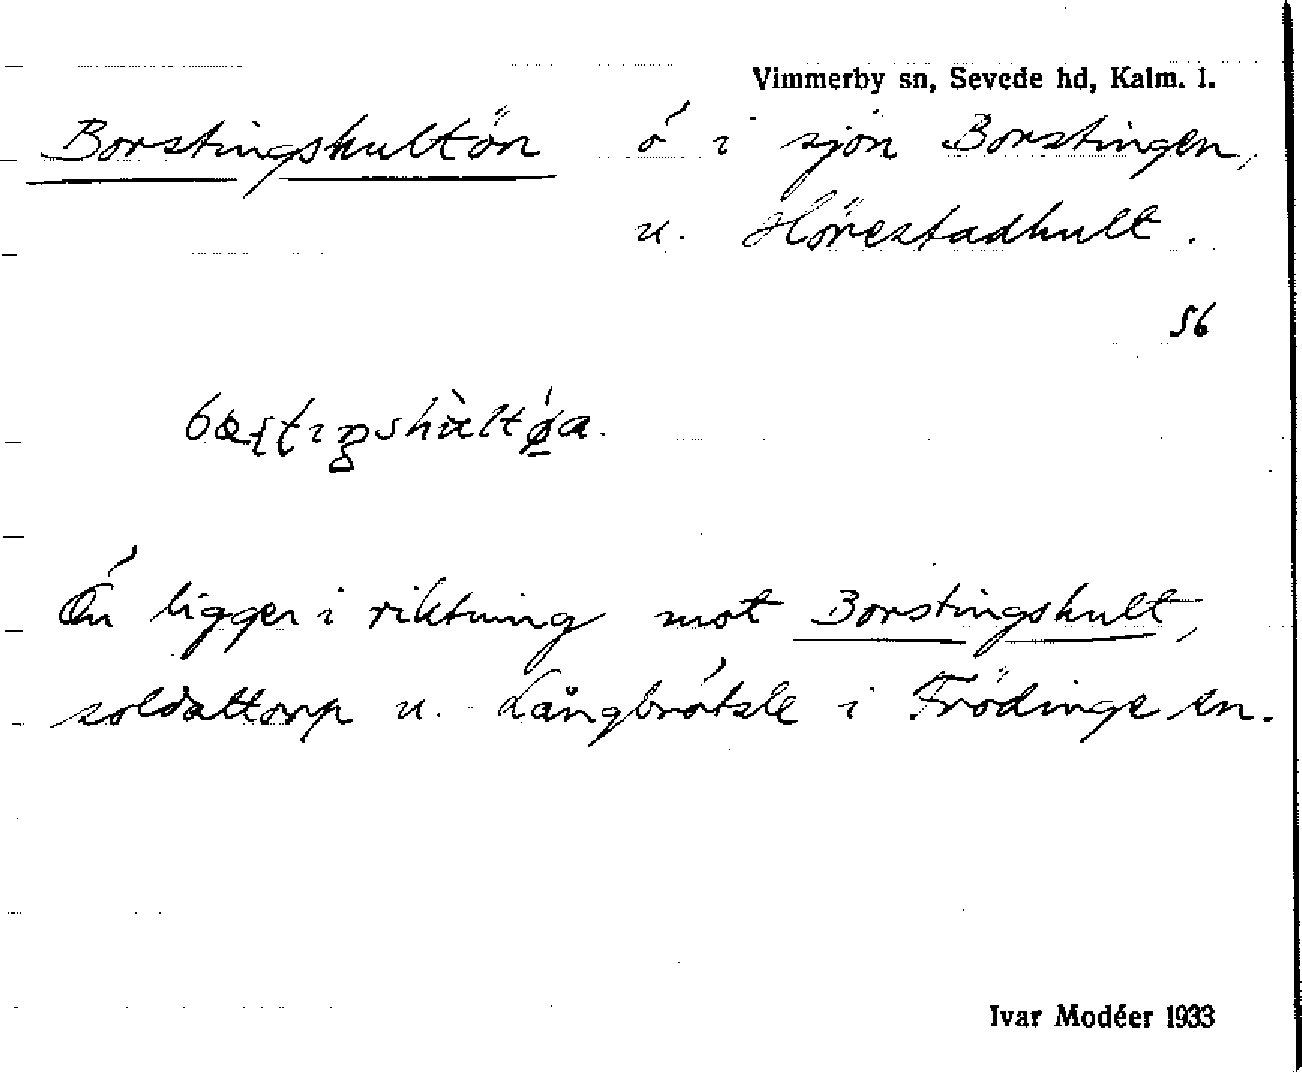 Vimmerby sn, Sevede hd, Kalm. l.
Borstingshultön ö i sjön Borstingen,
u. Hörestadhult.
56
Ön ligger i riktning mot Borstingshult,
soldattorp u. Långbrötsle i Frödinge sn.
Ivar Modéer 1933